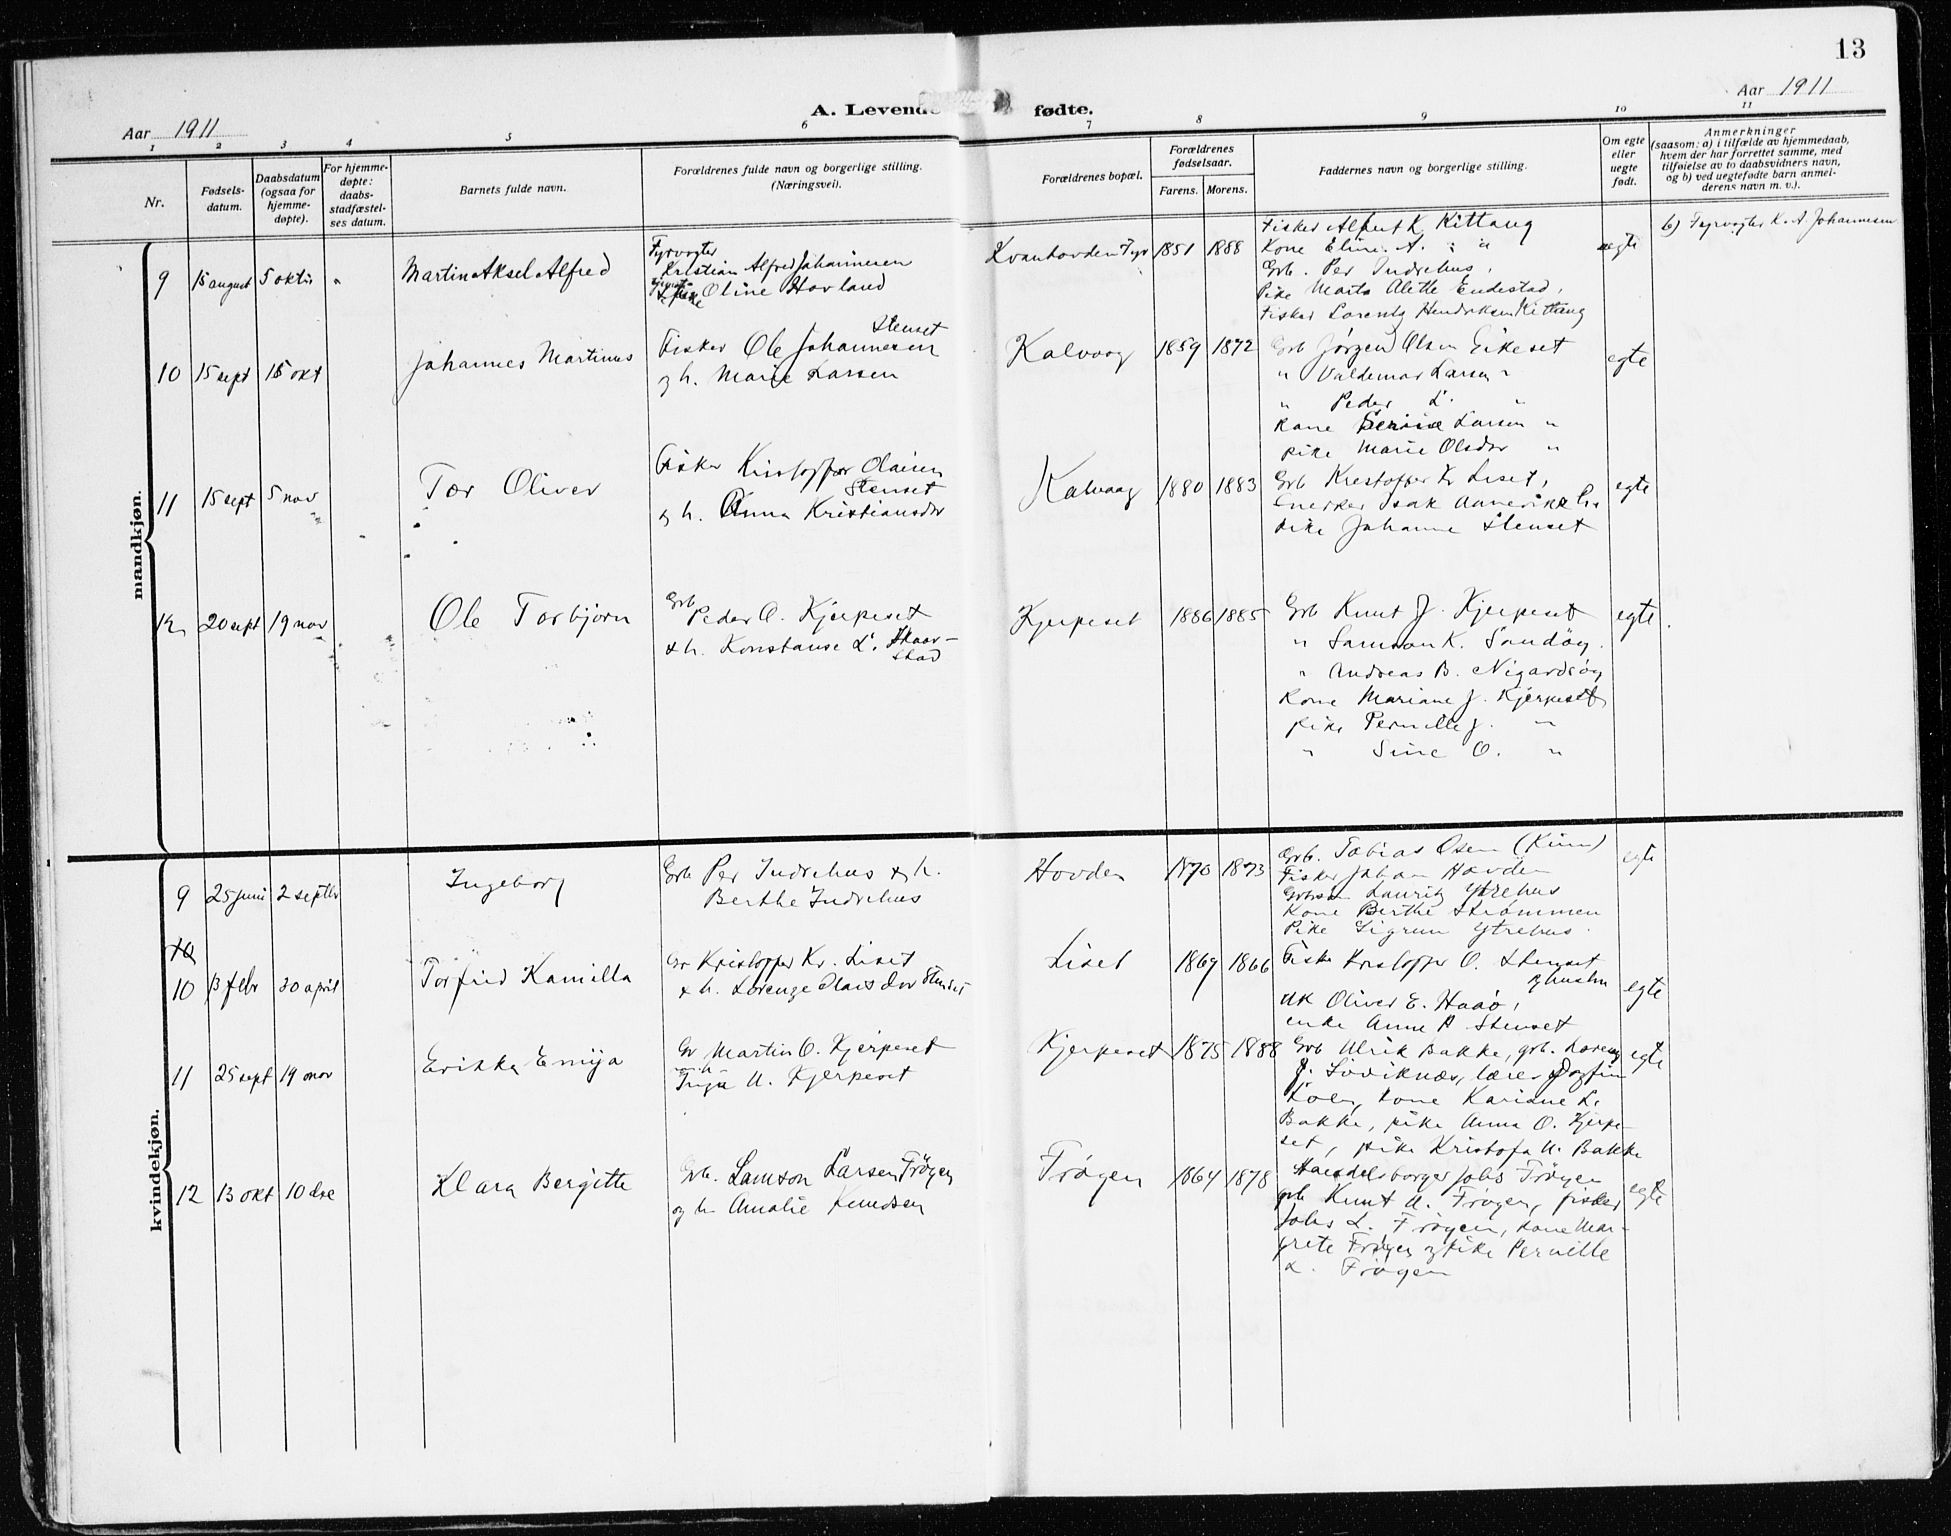 13
Aar 1911
A. Levende fødte.
Aar 1911
1 2 3 4 5 6 7 8 9 10 11
Nr.
Fødsels-
datum.
Daabsdatum
(ogsaa for
hjemme-
døpte).
For hjemme-
døpte:
daabs-
stadfæstel-
ses datum.
Barnets fulde navn.
Forældrenes fulde navn og borgerlige stilling.
(Næringsvei).
Forældrenes bopæl.
Forældrenes
fødselsaar.
Farens. Morens.
Faddernes navn og borgerlige stilling.
Om egte
eller
uegte
født.
Anmerkninger
(saasom: a) i tilfælde av hjemmedaab,
hvem der har forrettet samme, med
tilføielse av to daabsvidners navn,
og b) ved uegtefødte barn anmel-
derens navn m. v.).
mandkjøn.
9 15 august 5 oktbr "
Martin Aksel Alfred
Fyrvogter
Kristian Alfred Johannesen
Oline Hovland
Kvanhovden Fyr 1851 1888
Fisker Albert K. Kittang
Kone Eline A. " "
Grb. Per Indrehus,
Pike Marta Alette Endestad,
Fisker Lorents Hendriksen Kittang
egte
b) Fyrvogter K. A Johannesen
10 15 sept 15 okt
Johannes Martinus
Stenset
Fisker Ole Johannesen
og h. Marie Larsen
Kalvaag 1859 1872
Grb Jørgen Olsen Eikeset
" Valdemar Larsen "
" Peder L. "
Kone Larsen "
pike Marie Olsdr "
egte
11 15 sept 5 nov
Tor Oliver
Fisker Kristoffer Olaisen
Stenset
og h. Anna Kristiansdr
Kalvaag 1880 1883
Grb Kristoffer Kr Liset,
Snerker Isak
pike Johanne Stenset
egte
12 20 sept 19 nov
Ole Torbjørn
Grb
Peder O. Kjerpeset
& h. Konstanse L. Skaar-
stad
Kjerpeset 1886 1885
Grb Knut J. Kjerpeset
" Samson K. Sandöy.
" Andreas B. Nigardsöy
Kone Mariane J. Kjerpeset
pike Pernille J. "
" Sine O. "
egte.
kvindekjøn.
9 25 juni 2 septbr
Ingeborg
Grb Per Indrehus og h.
Berthe Indrehus
Hovden 1870 1873
Grb. Tobias Osen (Kinn)
Fisker Johan Hovden
Grbsøn Lauritz Ytrehus
Kone Berthe Strömmen
Pike Sigrun Ytrehus.
egte
10
10 13 febr 30 april
Torfrid Kamilla
Gr Kristoffer Kr. Liset
& h. Lorense Olaisdr Stenset
Liset 1869 1866
Fisker Kristoffer O. Stenset
og hustru
uk Oliver E. Haaö,
enke Anne P Stenset
egte
11 25 sept 19 nov
Erikka Emija
Gr Martin O. Kjerpeset
og h
Inga A. Kjerpeset
Kjerpeset 1875 1888
Grb Ulrik Bakke, grb. Lorens
J. Söviknæs, lærer Dagfin
kone Kariane L.
Bakke, pike Anna O. Kjerpe-
set, pike Kristofa U. Bakke
egte
12 13 okt 10 dec
Klara Bergitte
Grb. Samson Larsen Fröyen
og h Amalie Knudsen
Fröyen 1864 1878
Handelsborger Johs Fröyen
grb Knut A. Fröyen, fisker
Johs L. Fröyen, kone Mar-
grete Fröyen og pike Pernille
L. Fröyen
egte